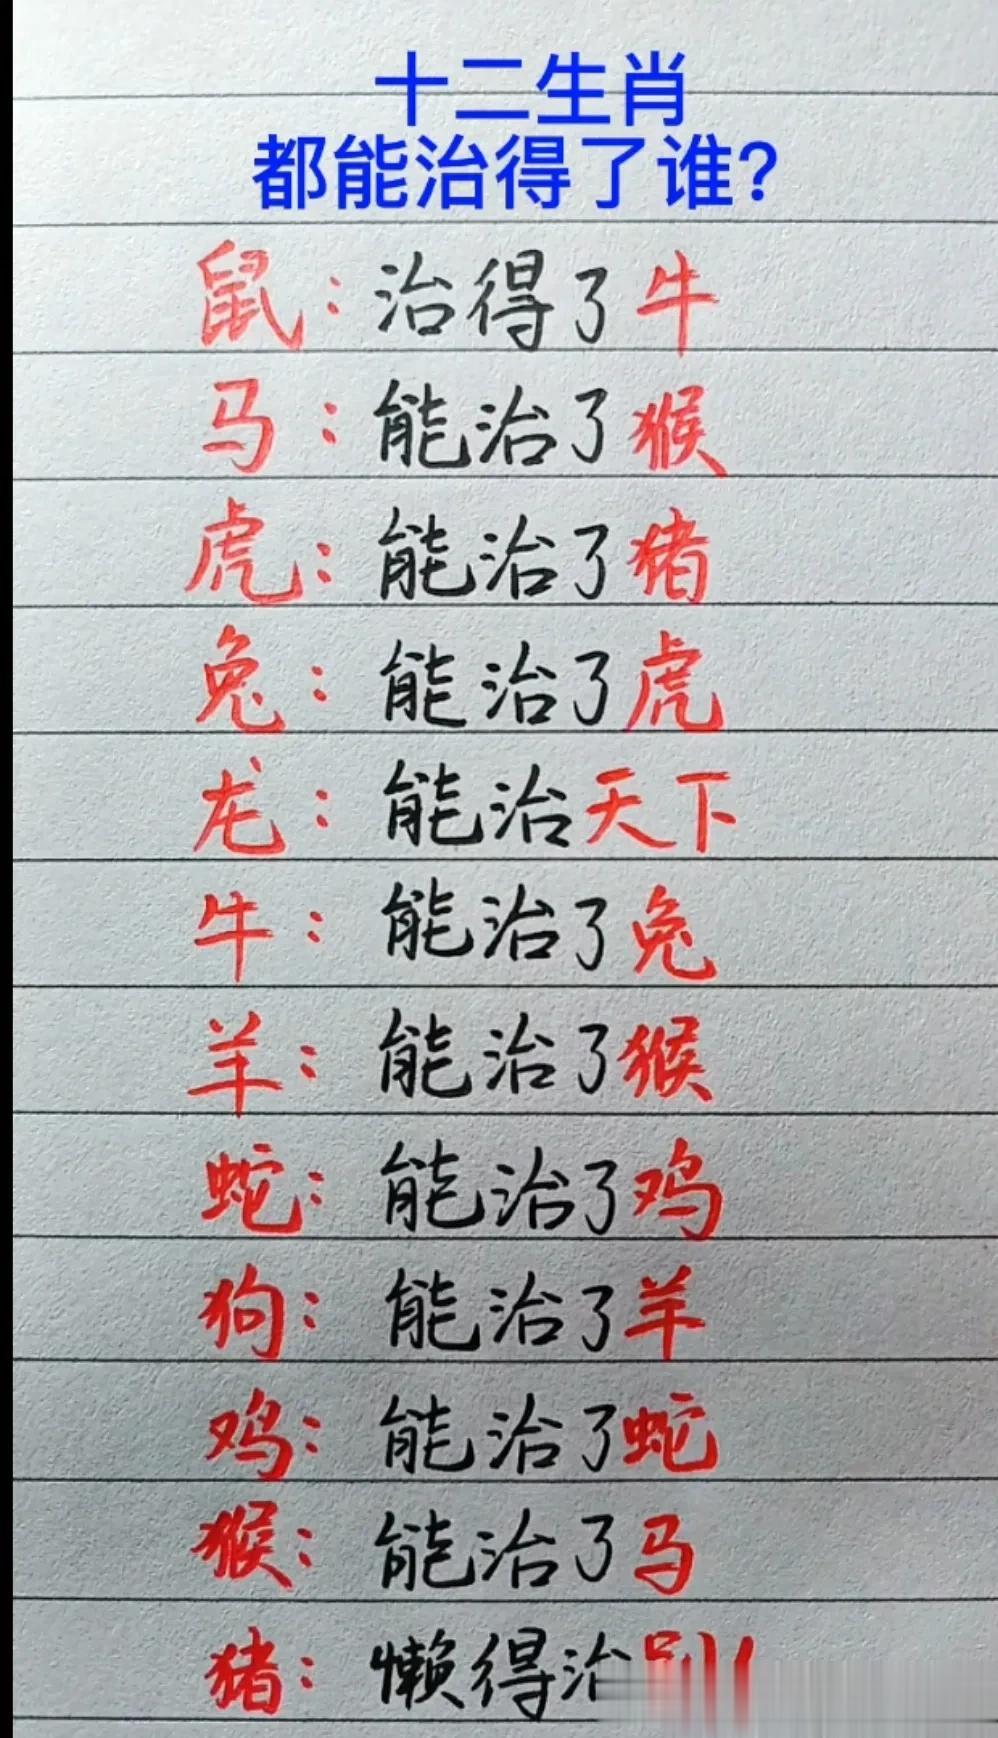 十二生肖
都能治得了谁?
鼠:治得了牛
马:能治了猴
虎:能治了猪
兔:能治了虎
龙:能治天下
牛:能治了兔
羊:能治了猴
蛇:能治了鸡
狗:能治了羊
鸡:能治了蛇
猴:能治了马
猪:懒得治